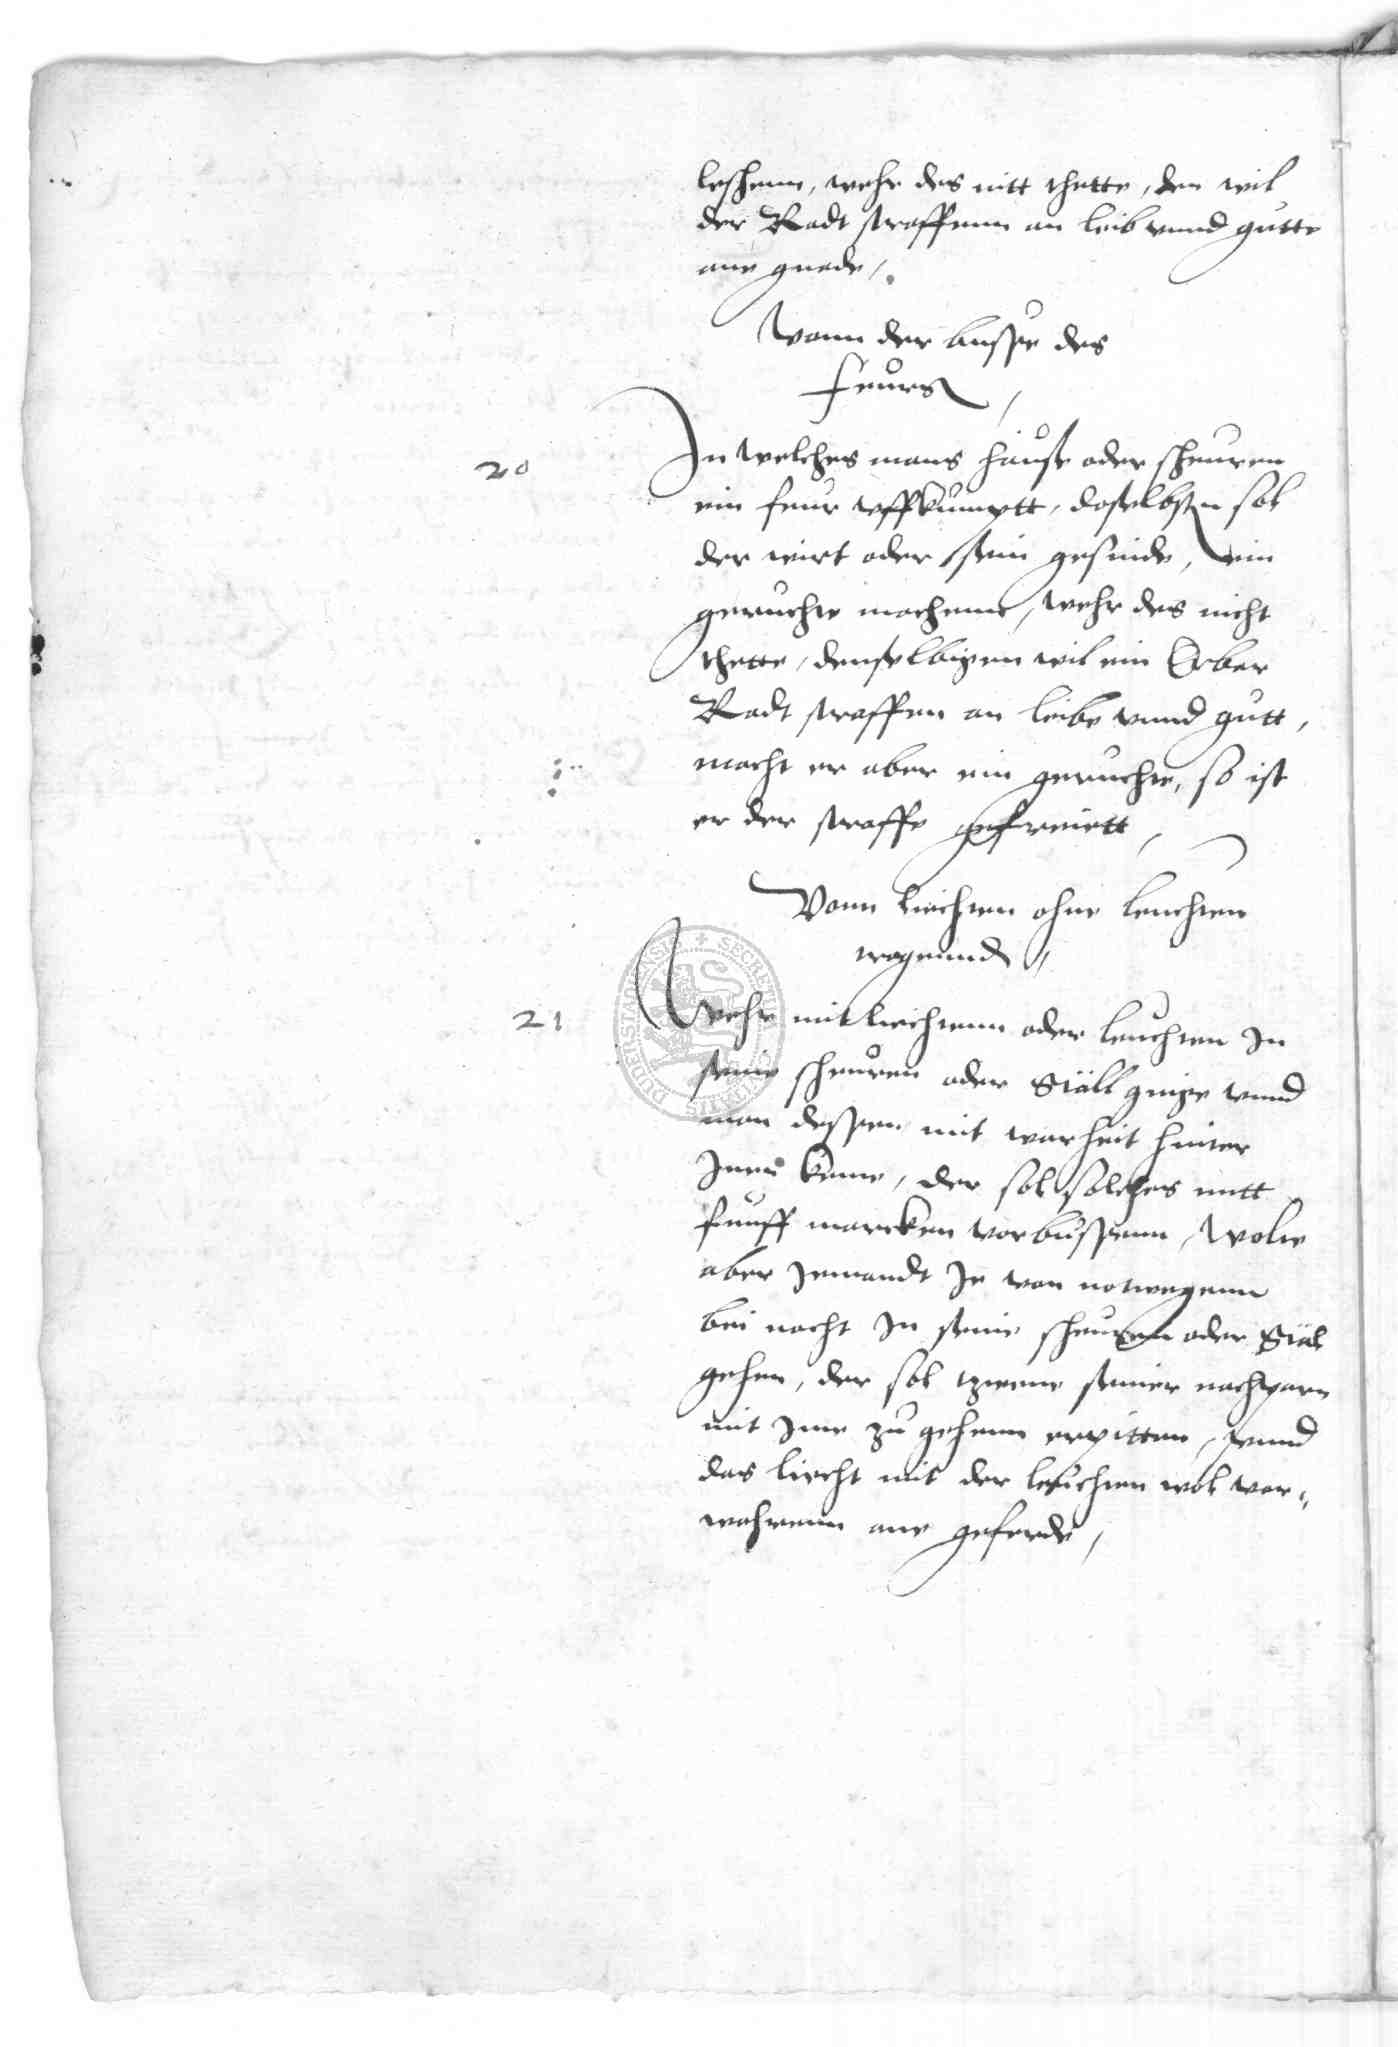 leshenn, wehr des nitt thette, den wil
der Radt straffenn an leib vnnd gutte
ane gnade,
Vonn der busse des
feurs,
20
In welches mans hause oder scheuren
ein feur vffkumptt, doselbsten sol
der wirt oder sein gesinde, ein
geruchte machenne, wehr des nicht
thette, denselbigen wil ein Erber
Radt straffen an leibe vnnd gutt,
macht er aber ein geruchte, so ist
er der straffe gefreiett,
Vonn liechten ohne leuchten
tragennd,
DUDERSTADENSIS + SECRETUM CIVITATIS
21
Wehr mit liechtenn oder leuchten In
seine scheuren oder Ställ ginge vnnd
man dessen mit warheit hinter
Ihnen keme, der sol solches mitt
funff marcken vorbussenn, Wolte
aber Jemandt Je von notwegenn
bei nacht In seine scheuren oder Stäl
gehen, der sol tzwene seiner nachparn
mit Ime zu gehenn erpitten, vnnd
das liecht mit der leuchten wol vor=
wahrenn ane geferde,